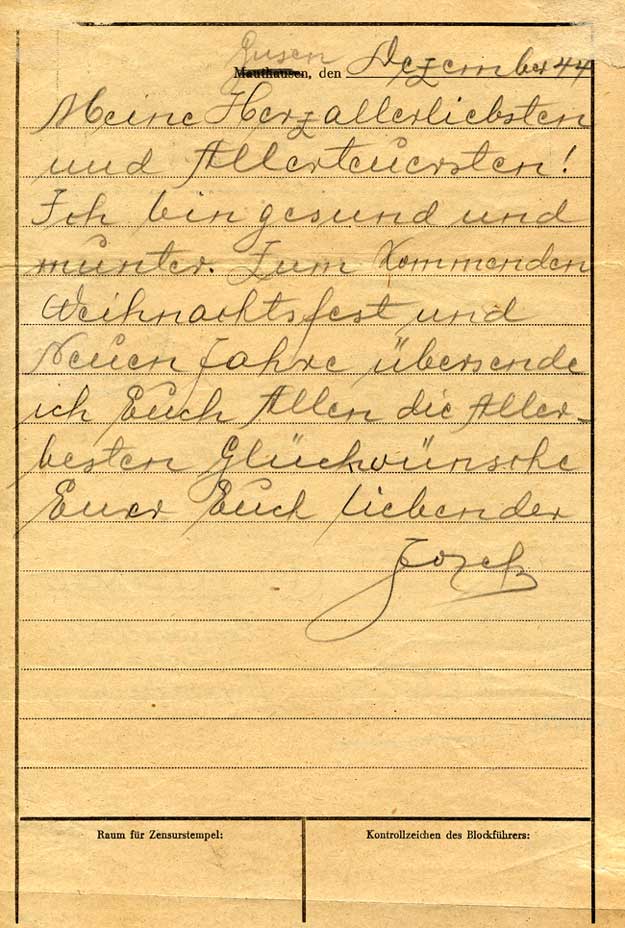 Gusen
Mauthausen, den Dezember 44
Meine Herzallerliebsten
und Allerteuersten!
Ich bin gesund und
munter. Zum Kommenden
Weihnachtsfest und
Neuen Jahre übersende
ich Euch Allen die Aller-
besten Glückwünsche
Euer Euch liebender
Jozef
Raum für Zensurstempel:
Kontrollzeichen des Blockführers: